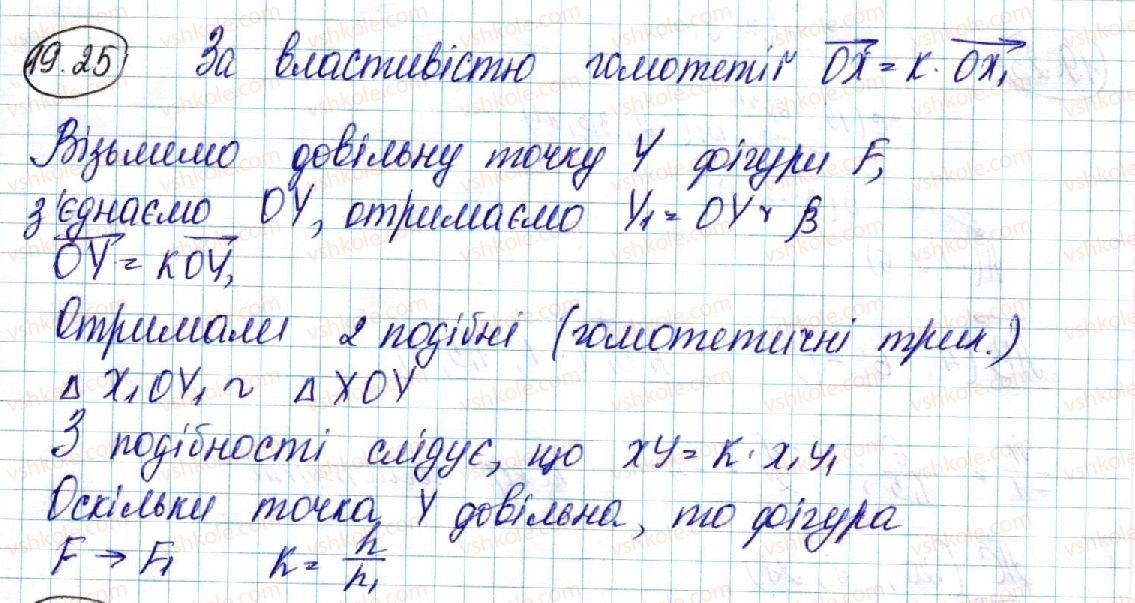 19.25 За властивістю гомотетії OX = k · OX₁
Візьмемо довільну точку Y фігури F,
з'єднаємо OY, отримаємо Y₁ = OY ∩ β
OY = kOY₁
Отримали 2 подібні (гомотетичні трик.)
Δ X₁OY₁ ~ Δ XOY
З подібності слідує, що XY = k · X₁Y₁
Оскільки точка Y довільна, то фігура
F → F₁ k = h/h₁